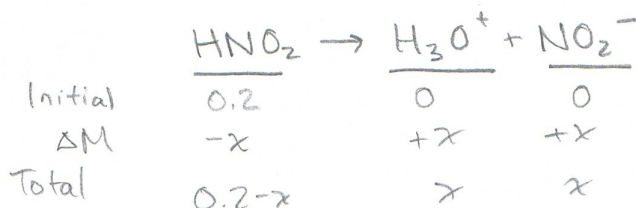 HNO₂ → H₃O⁺ + NO₂⁻
Initial 0.2 0 0
ΔM -x +x +x
Total 0.2-x x x